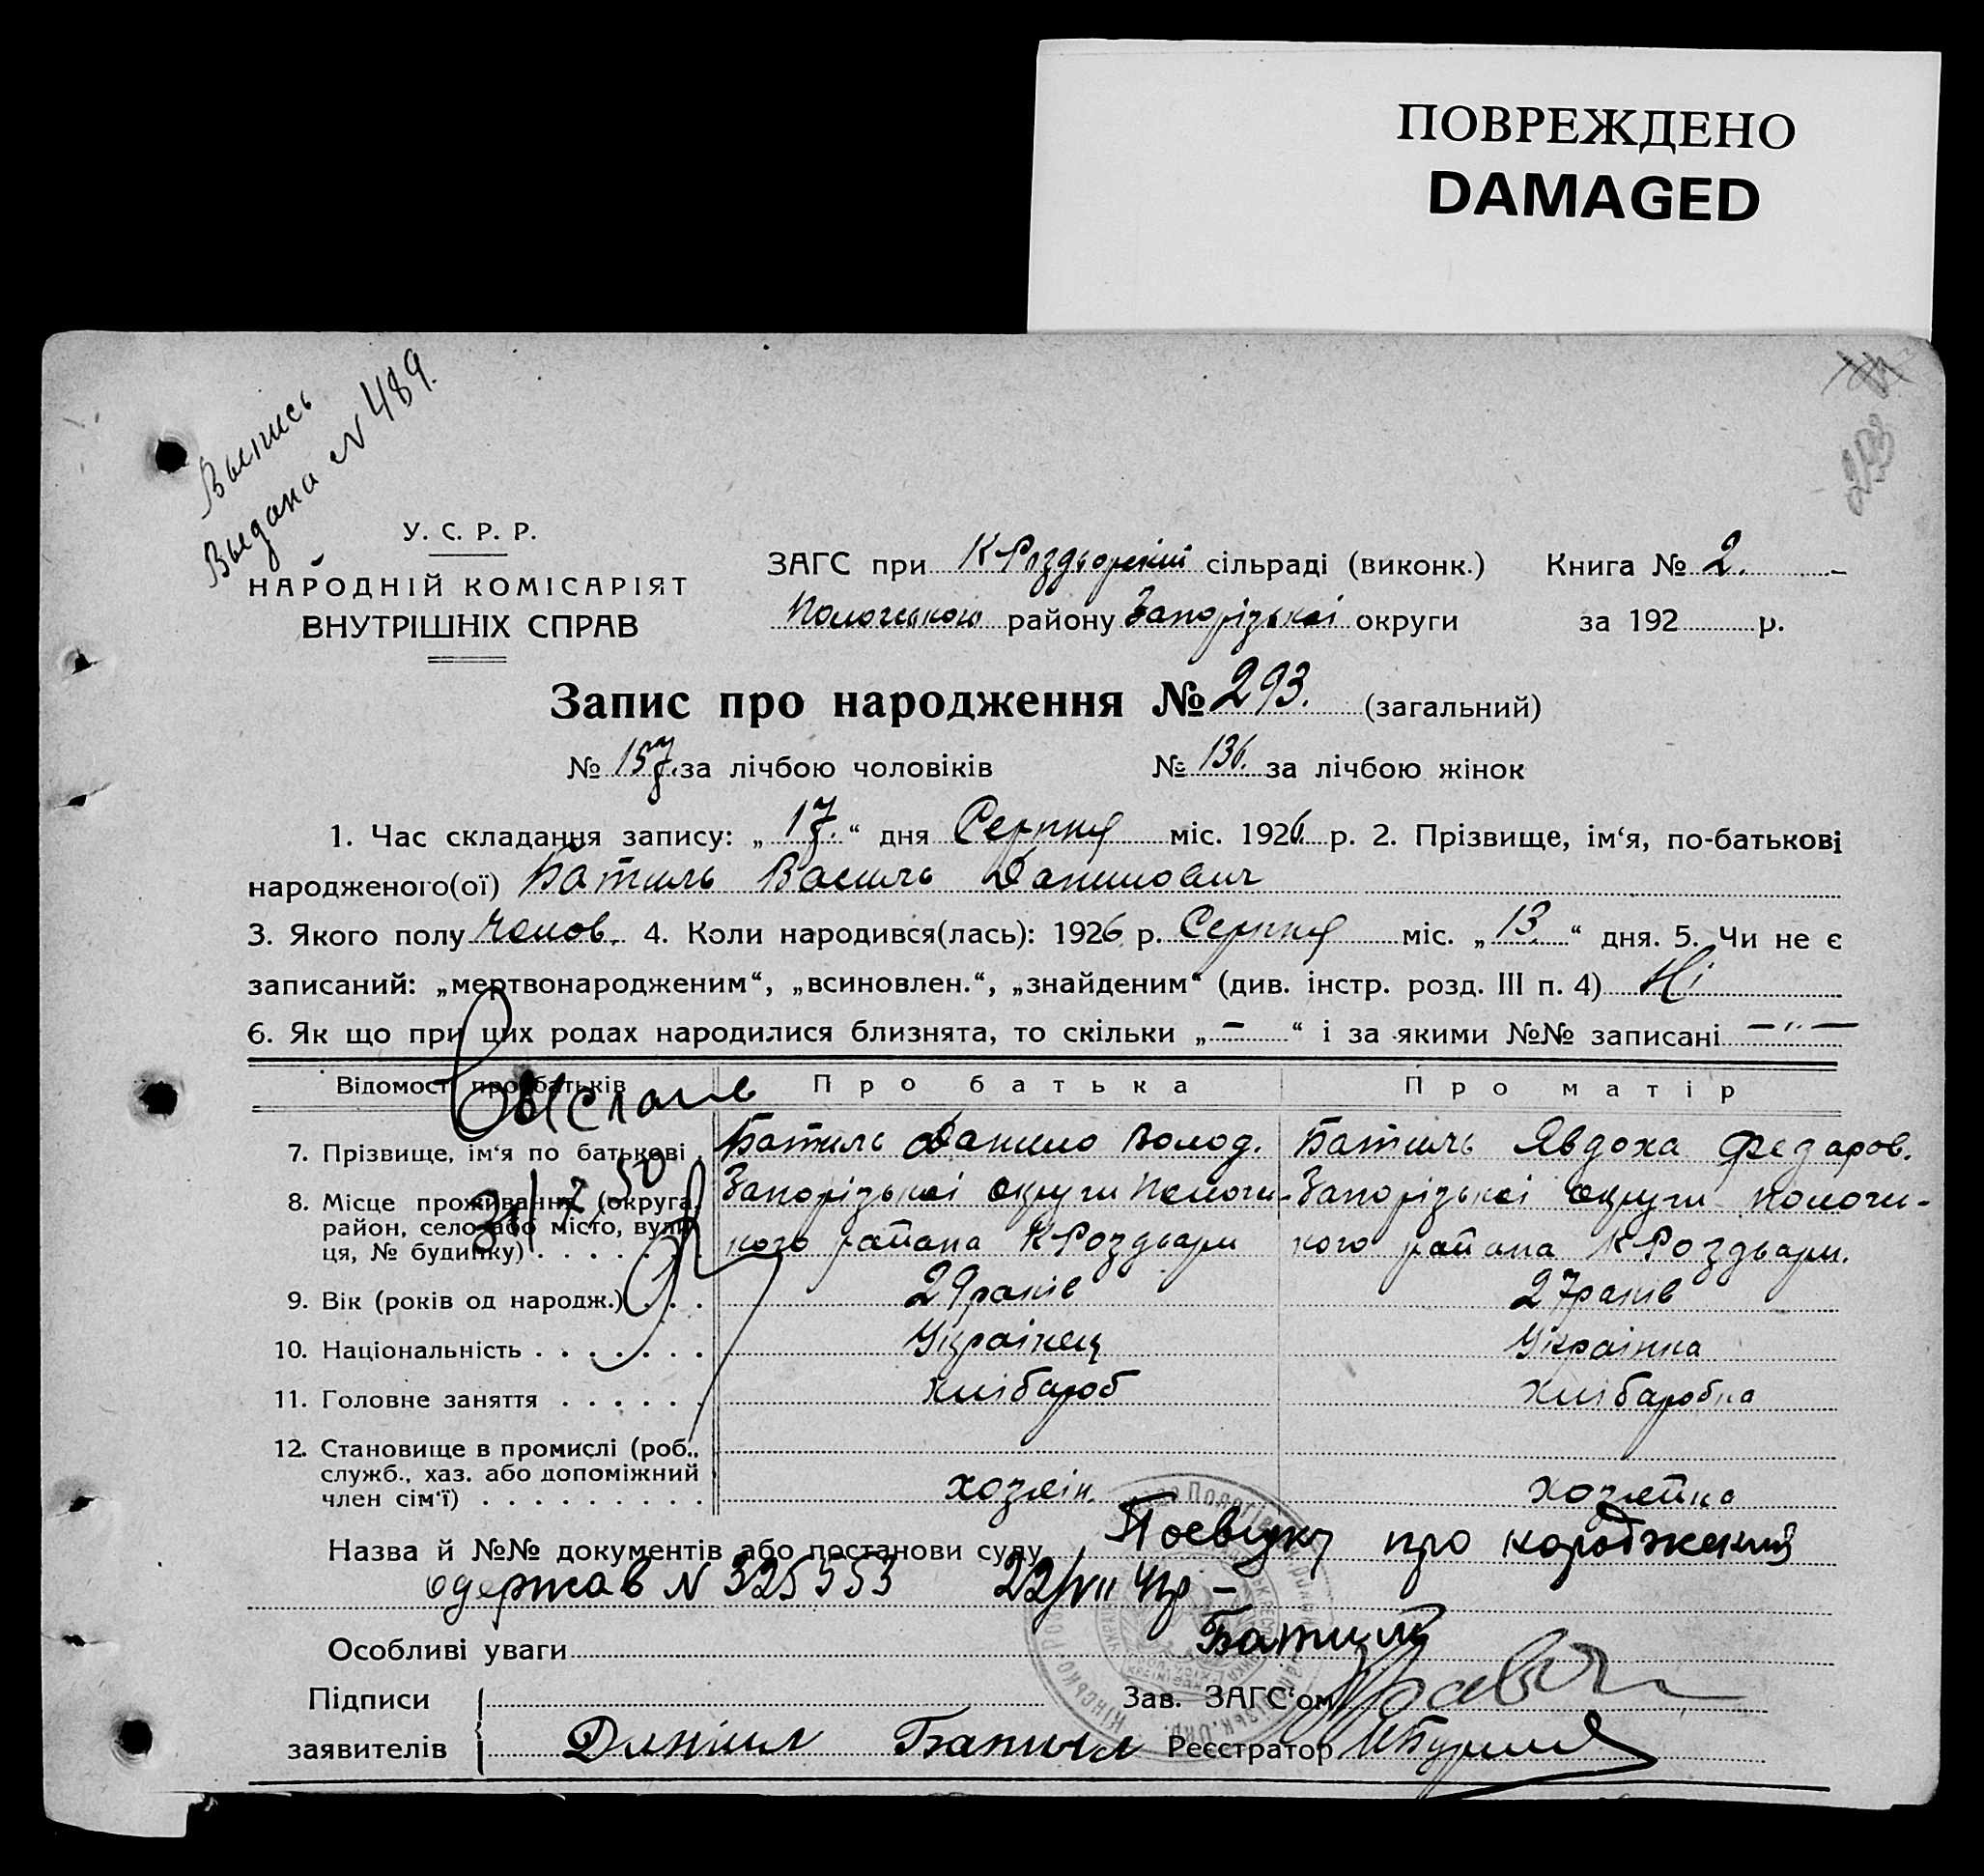 ПОВРЕЖДЕНО
DAMAGED
Выпись
Выдана N 489.
293
У. С. Р. Р.
НАРОДНІЙ КОМІСАРІЯТ
ВНУТРІШНІХ СПРАВ
ЗАГС при К Роздорскій сільраді (виконк.) Книга № 2.
Пологського району Запорізької округи за 192 р.
Запис про народження № 293. (загальний)
№ 157. за лічбою чоловіків № 136. за лічбою жінок
1. Час складання запису: „ 17. “ дня Серпня міс. 1926 р. 2. Прізвище, ім‘я, по-батькові
народженого(ої) Батиль Василь Данилович
3. Якого полу чолов. 4. Коли народився(лась): 1926 р. Серпня міс. „ 13. “ дня. 5. Чи не є
записаний: „мертвонародженим“, „всиновлен.“, „знайденим“ (див. інстр. розд. III п. 4) Ні
6. Як що при цих родах народилися близнята, то скільки „ – “ і за якими №№ записані – „ –
Відомості про батьків Про батька Про матір
7. Прізвище, ім‘я по батькові Батиль Данило Волод. Батиль Явдоха Федаров.
8. Місце проживання (округа, район, село або місто, вулиця, № будинку) Запорізької округи Пологи- Запорізької округи Пологи-
кого района К Роздари кого района К Роздари.
31/7 50
9. Вік (років од народж.) 29 раків 27 раків
10. Національність Українець Українка
11. Головне заняття Хлібароб Хлібаробка
12. Становище в промислі (роб., служб., хаз. або допоміжний член сім‘ї) хозяін. хозяйка
Назва й №№ документів або постанови суду про народження
одержав N 325553 22/VII
Особливі уваги Батиль
Підписи Зав. ЗАГС‘ом
заявителів Даніил Батыл Реєстратор